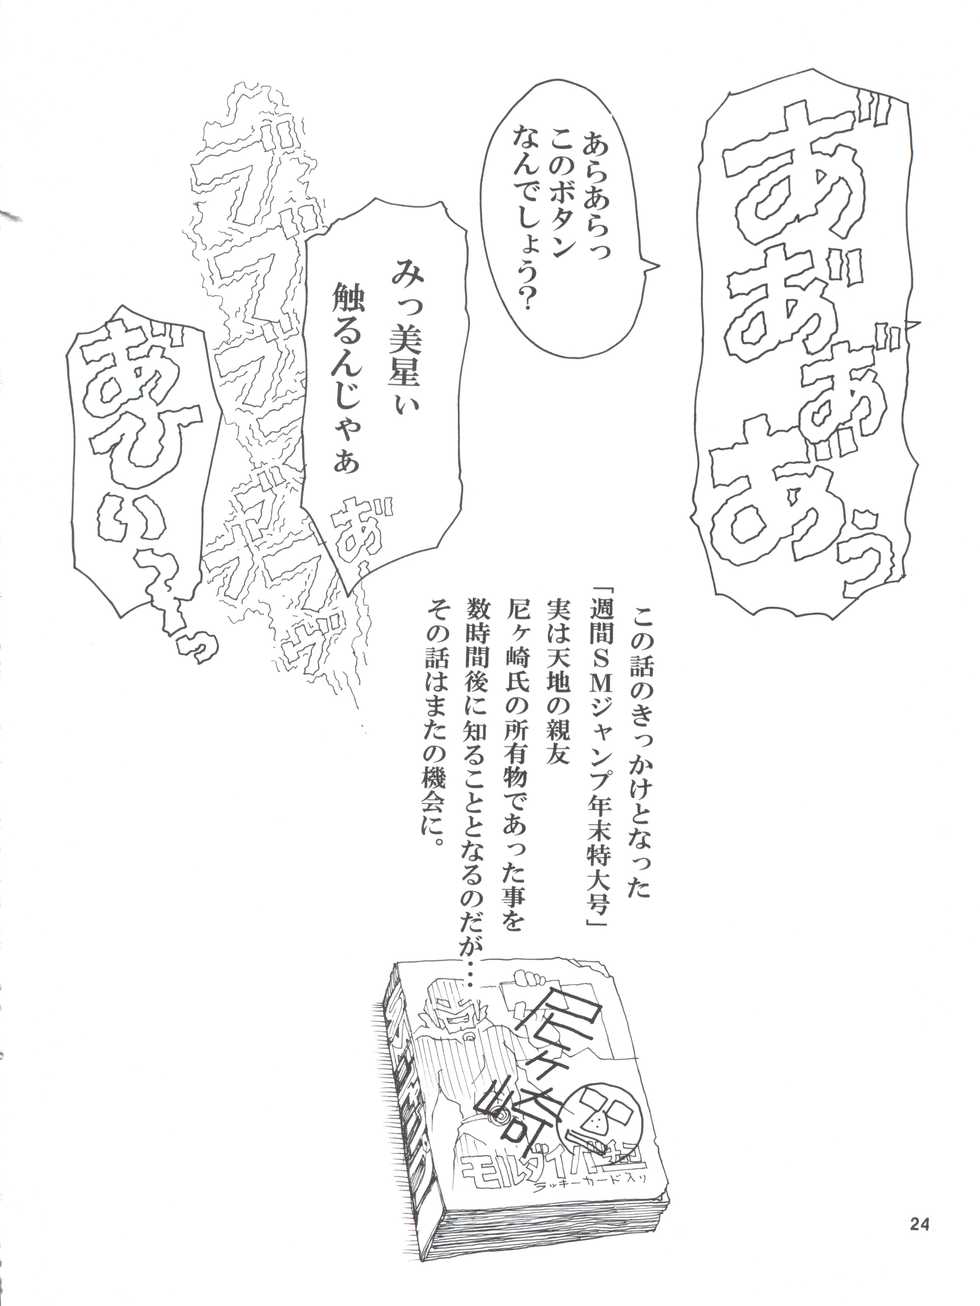 あ゛あ゛あ゛あ゛ぅ
あらあらっ
このボタン
なんでしょう？
みっ美星ぃ
触るんじゃぁ
あ゛
あ゛ひぃっーっ
この話のきっかけとなった
「週間ＳＭジャンプ年末特大号」
実は天地の親友
尼ヶ崎氏の所有物であった事を
数時間後に知ることとなるのだが…
その話はまたの機会に。
尼ヶ崎
モルダイバー
ラッキーカード入り
24